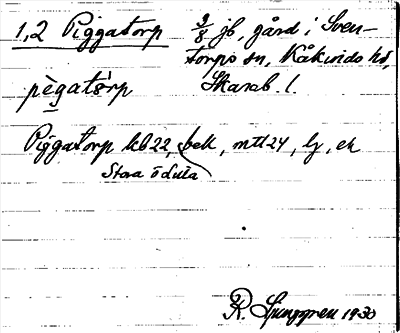 1,2 Piggatorp 3/8 jb, gård i Sven-
torps sn, Kåkinds hd,
pègatǻrp Skarab. l.
Piggatorp kb 22, bek, mtl 24, lj, ek
Stora ö Lilla
R. Ljunggren 1930